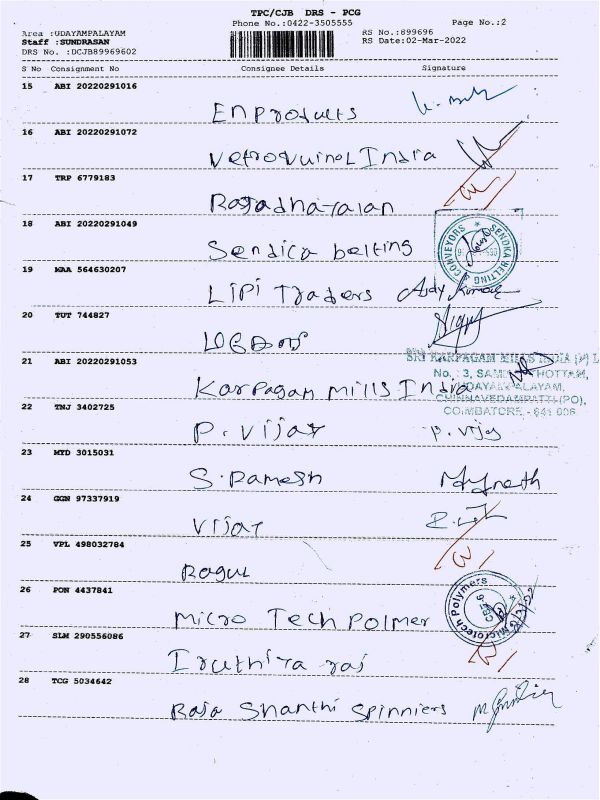 TPC/CJB DRS - PCG
Phone No.:0422-3505555 Page No.:2
Area :UDAYAMPALAYAM RS No.:899696
Staff :SUNDRASAN RS Date:02-Mar-2022
DRS No. :DCJB89969602
S No Consignment No Consignee Details Signature
15 ABI 20220291016
En Products
16 ABI 20220291072
Vetrovuinol India
17 TRP 6779183
18 ABI 20220291049
Sendica belting
CONVEYORS * SENDKA BELTING
19 MAA 564630207
LiPi Traders Ajay Kumar
20 TUT 744827
மகேஸ்
21 ABI 20220291053
SRI KARPAGAM MILLS INDIA (P) L
No. 3, THOTTAM,
UDAYAMPALAYAM,
CHINNAVEDAMPATTI(PO),
COIMBATORE - 641 006
Karpagam mills India
22 TNJ 3402725
P. Vijay P. Vijay
23 MTD 3015031
S. Ramesh
24 GGN 97337919
Vijay
25 VPL 498032784
Ragul
26 PON 4437841
Micro Tech Polmer
Microtech Polymers
CBE-6
27 SLM 290556086
Iruthiya raj
28 TCG 5034642
Raja Shanthi Spinniers